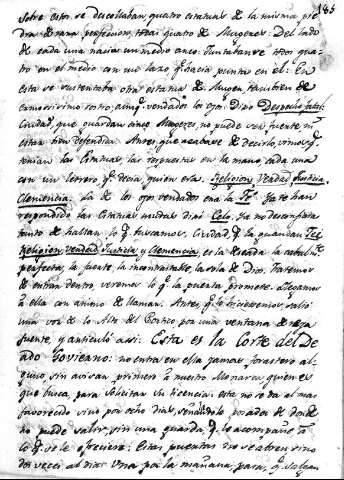 185
sobre esta se descollaban quatro estatuas de la misma pie
dra de rara perfeccion, todas quatro de Mugeres. Del lado
de cada una nacia un medio arco. Juntabanse todos qua
tro en el medio con un lazo, q hacia punta en el: En
esta se sustentaba otra estatua de Muger tambien de
hermosissimo rostro, aunq. vendados los ojos: Dixo Despecho:
Ciudad, que guardan cinco Mugeres, no puede ser fuerte ni
estar bien defendida. Antes que acabase de decirlo, vimos q
tenian las Estatuas, las respuestas en la mano, cada una
con un letrero, q decia, quien era. Religion, Verdad, Justicia,
Clemencia; la de los ojos vendados era la Fé. Ya te han
respondido las Estatuas mudas dixo Zelo. Ya no desconfiara
tanto de hallar lo q buscamos. Ciudad, q la guardan Fé,
Religion, Verdad, Justicia, y Clemencia, es la deseada, la
perfecta, la fuerte, la incontrastable, la sola de Dios. Tratemos
de entrar dentro, veremos lo q la puerta promete. Llegamos
a ella con animo de llamar. Antes q lo hiciessemos, salió
una voz de lo Alto del Portico por una ventana de reja
fuerte, y articuló assi: Esta es la Corte del De
seado Govierno: no entra en ella jamas forastero al
guno, sin avisar primero a nuestro Monarca quien es
que busca, para solicitar su licencia: esta no se da al mas
favorecido sino por ocho dias, señalandole posada de donde
no puede salir, sin una guarda, q le acompañe a to
lo q se le ofreciere: Estas puertas no se abren sino
dos veces al dia: Una por la mañana, para, q salgan